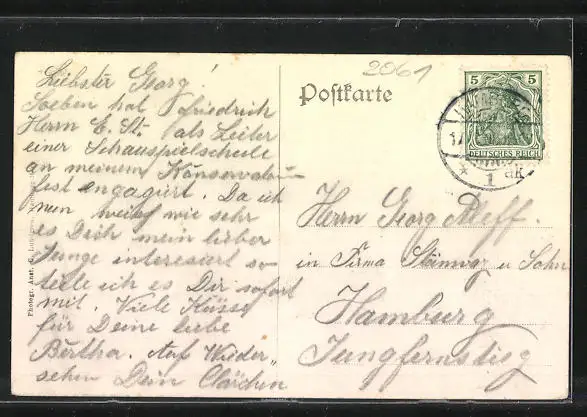 Liebster Georg!
Soeben hat Friedrich
Herrn E. St. als Leiter
einer Schauspielschule
an meinem Konservato-
engagiert. Da ich
nun weiß wie sehr
es Dich mein lieber
Junge interesiert so
teile ich es Dir sofort
mit. Viele Küsse
für Deine liebe
Bertha. Auf Wieder-
sehen Dein Clärchen
2061
Postkarte
5 5
DEUTSCHES REICH
* 1 *
Herrn Georg
in Firma u Sohn
Hamburg
Jungfernstieg
Photogr. Anst.